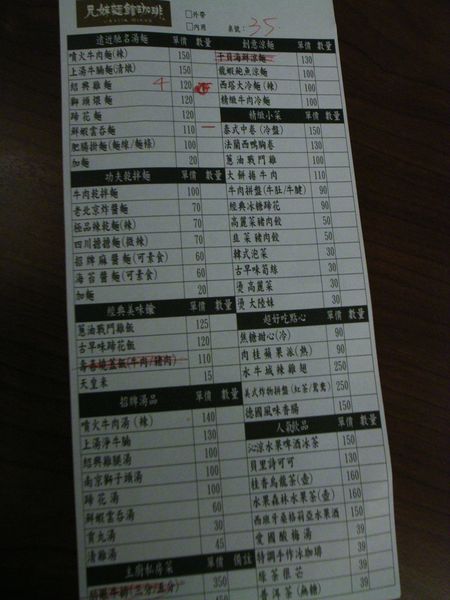 兄妹麵館咖啡
□外帶
□內用 桌號：35
遠近馳名湯麵 單價 數量
噴火牛肉麵(辣) 150
上湯牛腩麵(清燉) 150
紹興雞麵 4 120
獅頭煨麵 120
蹄花麵 120
鮮蝦雲吞麵 110 一
肥腸掛麵(麵線/麵條) 100
加麵 20
功夫乾拌麵 單價 數量
牛肉乾拌麵 100
老北京炸醬麵 70
極品辣乾麵(辣) 70
四川擔擔麵(微辣) 70
招牌麻醬麵(可素食) 60
海苔醬麵(可素食) 60
加麵 20
經典美味飯 單價 數量
蔥油戰鬥雞飯 125
古早味蹄花飯 120
壽喜燒蓋飯(牛肉/豬肉) 110
天皇米 15
招牌湯品 單價 數量
噴火牛肉湯(辣) 140
上湯淨牛腩 150
紹興雞腿湯 100
南京獅子頭湯 100
蹄花湯 100
鮮蝦雲吞湯 60
貢丸湯 30
清雞湯 45
主廚私房菜 單價 備註
350
創意涼麵 單價 數量
干貝海鮮涼麵 130
龍蝦鮑魚涼麵 100
西塔大冷麵(辣) 100
精緻牛肉冷麵 100
精緻小菜 單價 數量
泰式中卷(冷盤) 150
法蘭西鴨胸卷 100
蔥油戰鬥雞 100
大餅捲牛肉 100
牛肉拼盤(牛肚/牛腱) 90
經典冰糖蹄花 90
高麗菜豬肉餃 50
韭菜豬肉餃 50
韓式泡菜 30
古早味筍絲 30
燙高麗菜 30
燙大陸妹 30
超好吃點心 單價 數量
焦糖甜心(冷) 90
肉桂蘋果派(熱) 90
水牛城辣雞翅 250
美式炸物拼盤(紅茶/鴛鴦) 250
德國風味香腸 150
人氣飲品 單價 數量
沁涼水果啤酒冰茶 150
貝里詩可可 130
桂香烏龍茶(壺) 160
水果森林水果茶(壺) 160
西班牙桑格莉亞水果酒 150
愛國酸梅湯 39
特調手作冰咖啡 39
綠茶很芒 39
普洱茶(無糖) 39